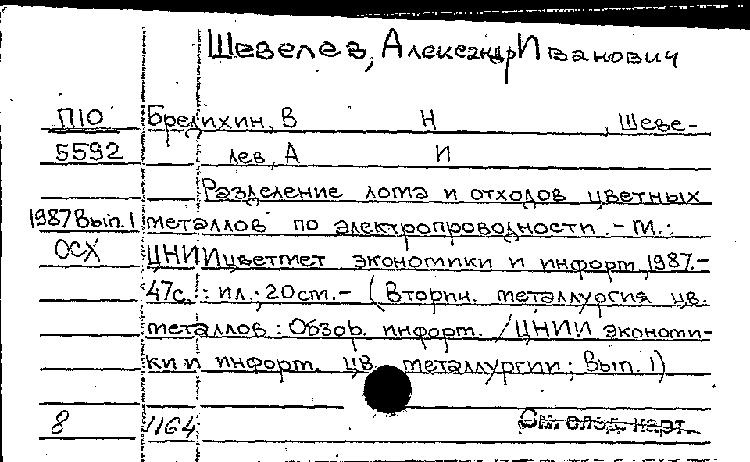 Шевелев, Александр Иванович
П10 Бредихин, В Н , Шеве-
5592 лев, А И
Разделение лома и отходов цветных
1987 Вып. 1 металлов по электропроводности. - М.:
ОСХ ЦНИИцветмет экономики и информ, 1987.-
47с.: ил.; 20см. - (Вторич. металлургия цв.
металлов: Обзор. информ. / ЦНИИ экономи-
ки и информ. цв. металлургии; Вып. 1)
8 1164 См. след. карт.